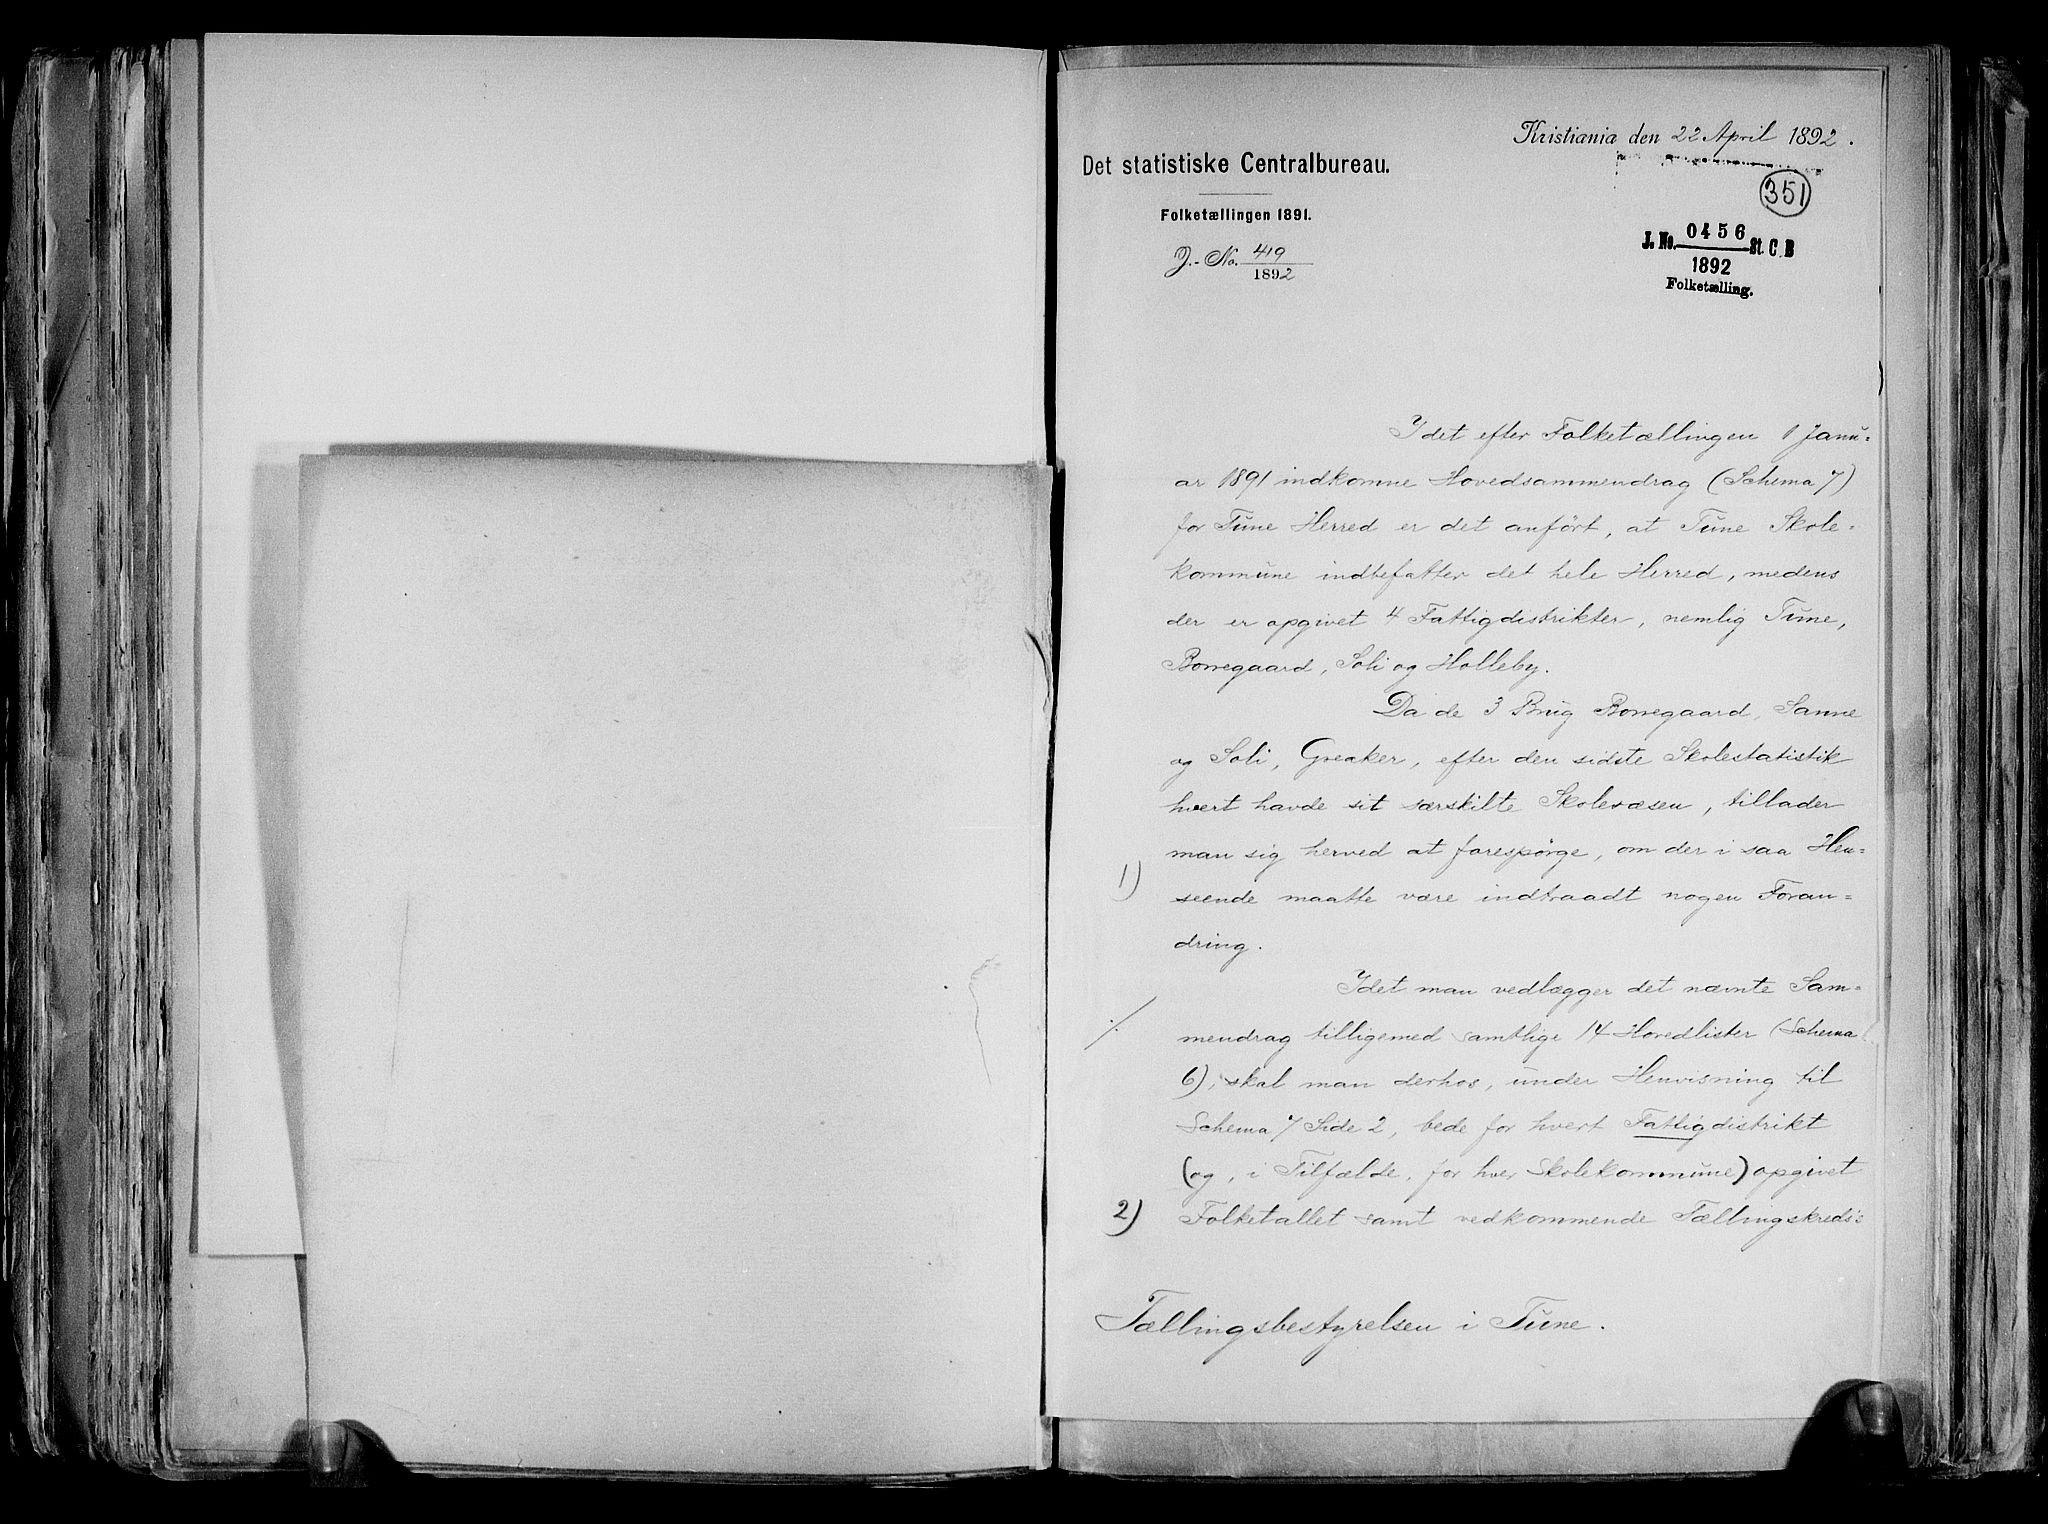 Kristiania den 22 April 1892.
Det statistiske Centralbureau.
351
Folketællingen 1891.
J.-No. 419
1892
J. No. 0456 St. C. B
1892
Folketælling.
Idet efter Folketællingen 1 Janu=
ar 1891 indkomne Hovedsammendrag (Schema 7)
for Tune Herred er det anført, at Tune Skole=
kommune indbefatter det hele Herred, medens
der er opgivet 4 Fattigdistrikter, nemlig Tune,
Borregaard, Soli og Holleby.
Da de 3 Brug Borregaard, Sanne
og Soli, Greaker, efter den sidste Skolestatistik
hvert havde sit særskilte Skolevæsen, tillader
man sig herved at forespørge, om der i saa Hen=
1) seende maatte være indtraadt nogen Foran=
dring.
Idet man vedlægger det nævnte Sam=
./. mendrag tilligemed samtlige 14 Hovedlister (Schema
6), skal man derhos, under Henvisning til
Schema 7 Side 2, bede for hvert Fattigdistrikt
(og, i Tilfælde, for hver Skolekommune) opgivet
2) Folketallet samt vedkommende Tællingskreds's
Tællingsbestyrelsen i Tune.